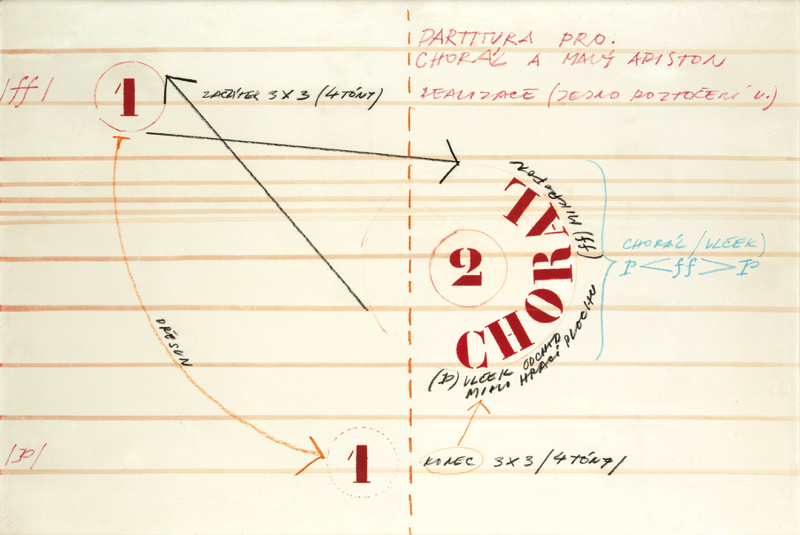 PARTITURA PRO.
CHORÁL A MALÝ ARISTON
REALIZACE (JEDNO ROZTOČENÍ V.)
|ff|
1
ZAČÁTEK 3X3 (4 TÓNY)
(ff) MIKROFON
CHORÁL
2
CHORÁL / VLČEK)
P < ff > P
PŘESUN
(P) VLČEK ODCHÁD
MIMO HRACÍ PLOCHU
|P|
1
KONEC 3X3 / 4 TÓNY /